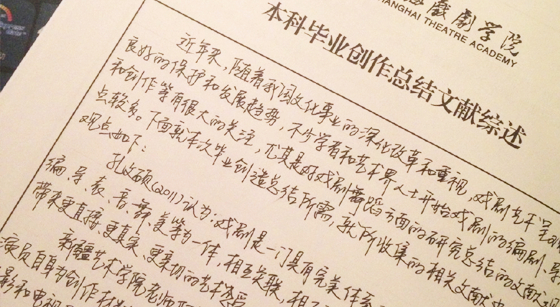 海戲劇学院
SHANGHAI THEATRE ACADEMY
本科毕业创作总结文献综述
近年来，随着我国文化事业的深化改革和重视，戏剧艺术呈现
良好的保护和发展趋势，不少学者和艺术界人士开始戏剧的编剧、
和创作等有很大的关注，尤其是对戏剧舞蹈方面的研究总结的文献
点较多。下面就本次毕业创造总结所需，我所收集的相关文献
观点如下：
孔（2011）认为：戏剧是一门具有完美体系
编、导、表、音、舞、美等为一体，相互关联，相
带来更直接、更真实、更亲切的艺术感受
新疆艺术学院老师
演员自身创作
影和电视